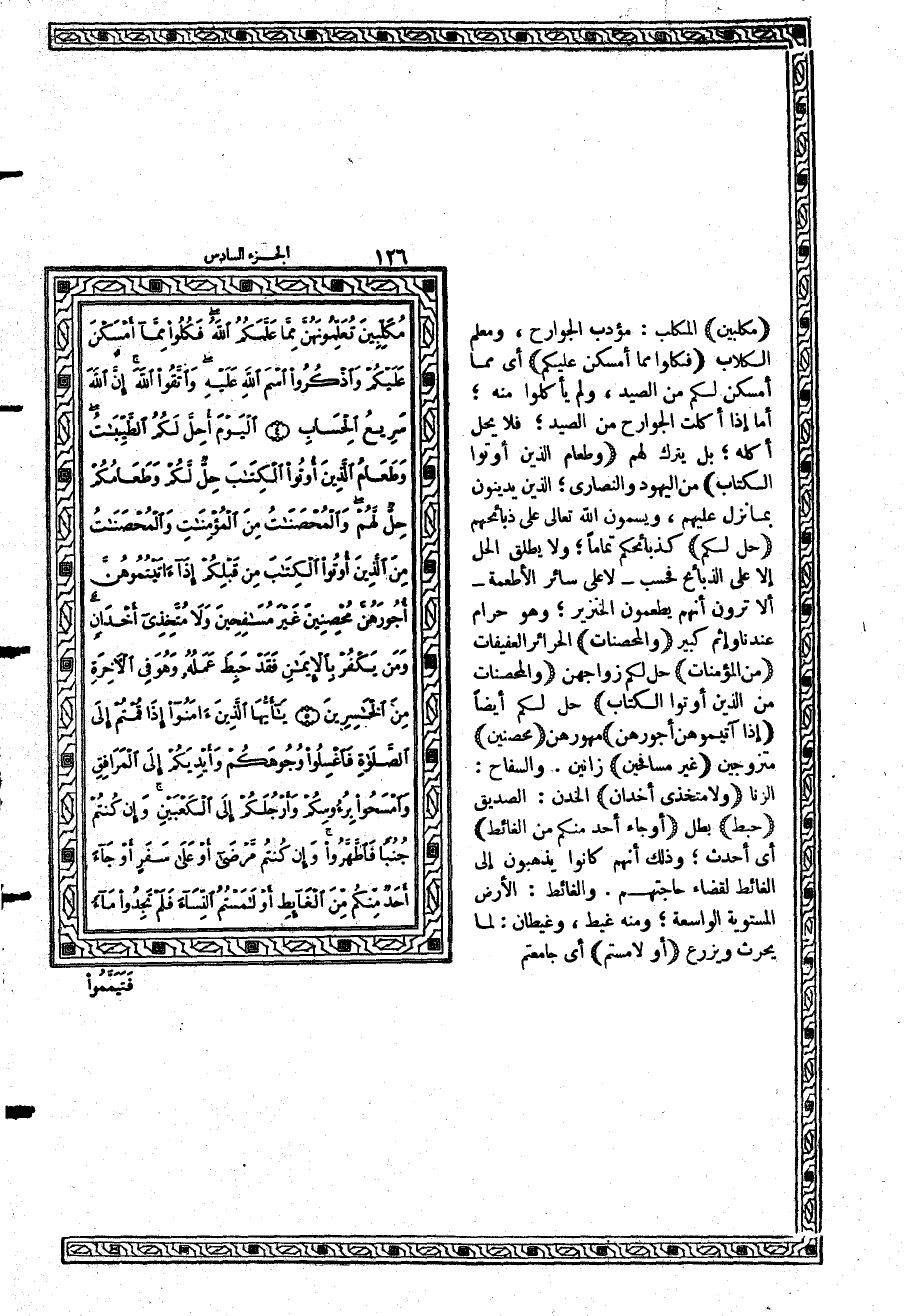 ١٢٦
الجزء السادس
(مكلبين) المكلب : مؤدب الجوارح ، ومعلم
الكلاب (فكلوا مما أمسكن عليكم) أى مما
أمسكن لكم من الصيد ، ولم يأكلوا منه ؛
أما إذا أكلت الجوارح من الصيد ؛ فلا يحل
أكله ؛ بل يترك لهم (وطعام الذين أوتوا
الكتاب) من اليهود والنصارى ؛ الذين يدينون
بما نزل عليهم ، ويسمون الله تعالى على ذبائحهم
(حل لكم) كذبائحكم تماماً ؛ ولا يطلق الحل
إلا على الذبائح فحسب ـ لا على سائر الأطعمة ـ
ألا ترون أنهم يطعمون الخنزير ؛ وهو حرام
عندنا وإثم كبير (والمحصنات) الحرائر العفيفات
(من المؤمنات) حل لكم زواجهن (والمحصنات
من الذين أوتوا الكتاب) حل لكم أيضاً
(إذا آتيموهن أجورهن) مهورهن (محصنين)
متزوجين (غير مسافحين) زانين . والسفاح :
الزنا (ولا متخذى أخدان) الخدن : الصديق
(حبط) بطل (أو جاء أحد منكم من الغائط)
أى أحدث ؛ وذلك أنهم كانوا يذهبون إلى
الغائط لقضاء حاجتهم . والغائط : الأرض
المستوية الواسعة ؛ ومنه غيط ، وغيطان : لما
يحرث ويزرع (أو لامستم) أى جامعتم
مُكَلِّبِينَ تُعَلِّمُونَهُنَّ مِمَّا عَلَّمَكُمُ ٱللَّهُۖ فَكُلُوا۟ مِمَّآ أَمْسَكْنَ
عَلَيْكُمْ وَٱذْكُرُوا۟ ٱسْمَ ٱللَّهِ عَلَيْهِۖ وَٱتَّقُوا۟ ٱللَّهَۚ إِنَّ ٱللَّهَ
سَرِيعُ ٱلْحِسَابِ ٤ ٱلْيَوْمَ أُحِلَّ لَكُمُ ٱلطَّيِّبَـٰتُۖ
وَطَعَامُ ٱلَّذِينَ أُوتُوا۟ ٱلْكِتَـٰبَ حِلٌّ لَّكُمْ وَطَعَامُكُمْ
حِلٌّ لَّهُمْۖ وَٱلْمُحْصَنَـٰتُ مِنَ ٱلْمُؤْمِنَـٰتِ وَٱلْمُحْصَنَـٰتُ
مِنَ ٱلَّذِينَ أُوتُوا۟ ٱلْكِتَـٰبَ مِن قَبْلِكُمْ إِذَآ ءَاتَيْتُمُوهُنَّ
أُجُورَهُنَّ مُحْصِنِينَ غَيْرَ مُسَـٰفِحِينَ وَلَا مُتَّخِذِىٓ أَخْدَانٍۗ
وَمَن يَكْفُرْ بِٱلْإِيمَـٰنِ فَقَدْ حَبِطَ عَمَلُهُۥ وَهُوَ فِى ٱلْـَٔاخِرَةِ
مِنَ ٱلْخَـٰسِرِينَ ٥ يَـٰٓأَيُّهَا ٱلَّذِينَ ءَامَنُوٓا۟ إِذَا قُمْتُمْ إِلَى
ٱلصَّلَوٰةِ فَٱغْسِلُوا۟ وُجُوهَكُمْ وَأَيْدِيَكُمْ إِلَى ٱلْمَرَافِقِ
وَٱمْسَحُوا۟ بِرُءُوسِكُمْ وَأَرْجُلَكُمْ إِلَى ٱلْكَعْبَيْنِۚ وَإِن كُنتُمْ
جُنُبًا فَٱطَّهَّرُوا۟ۚ وَإِن كُنتُم مَّرْضَىٰٓ أَوْ عَلَىٰ سَفَرٍ أَوْ جَآءَ
أَحَدٌ مِّنكُم مِّنَ ٱلْغَآئِطِ أَوْ لَـٰمَسْتُمُ ٱلنِّسَآءَ فَلَمْ تَجِدُوا۟ مَآءً
فَتَيَمَّمُوا۟